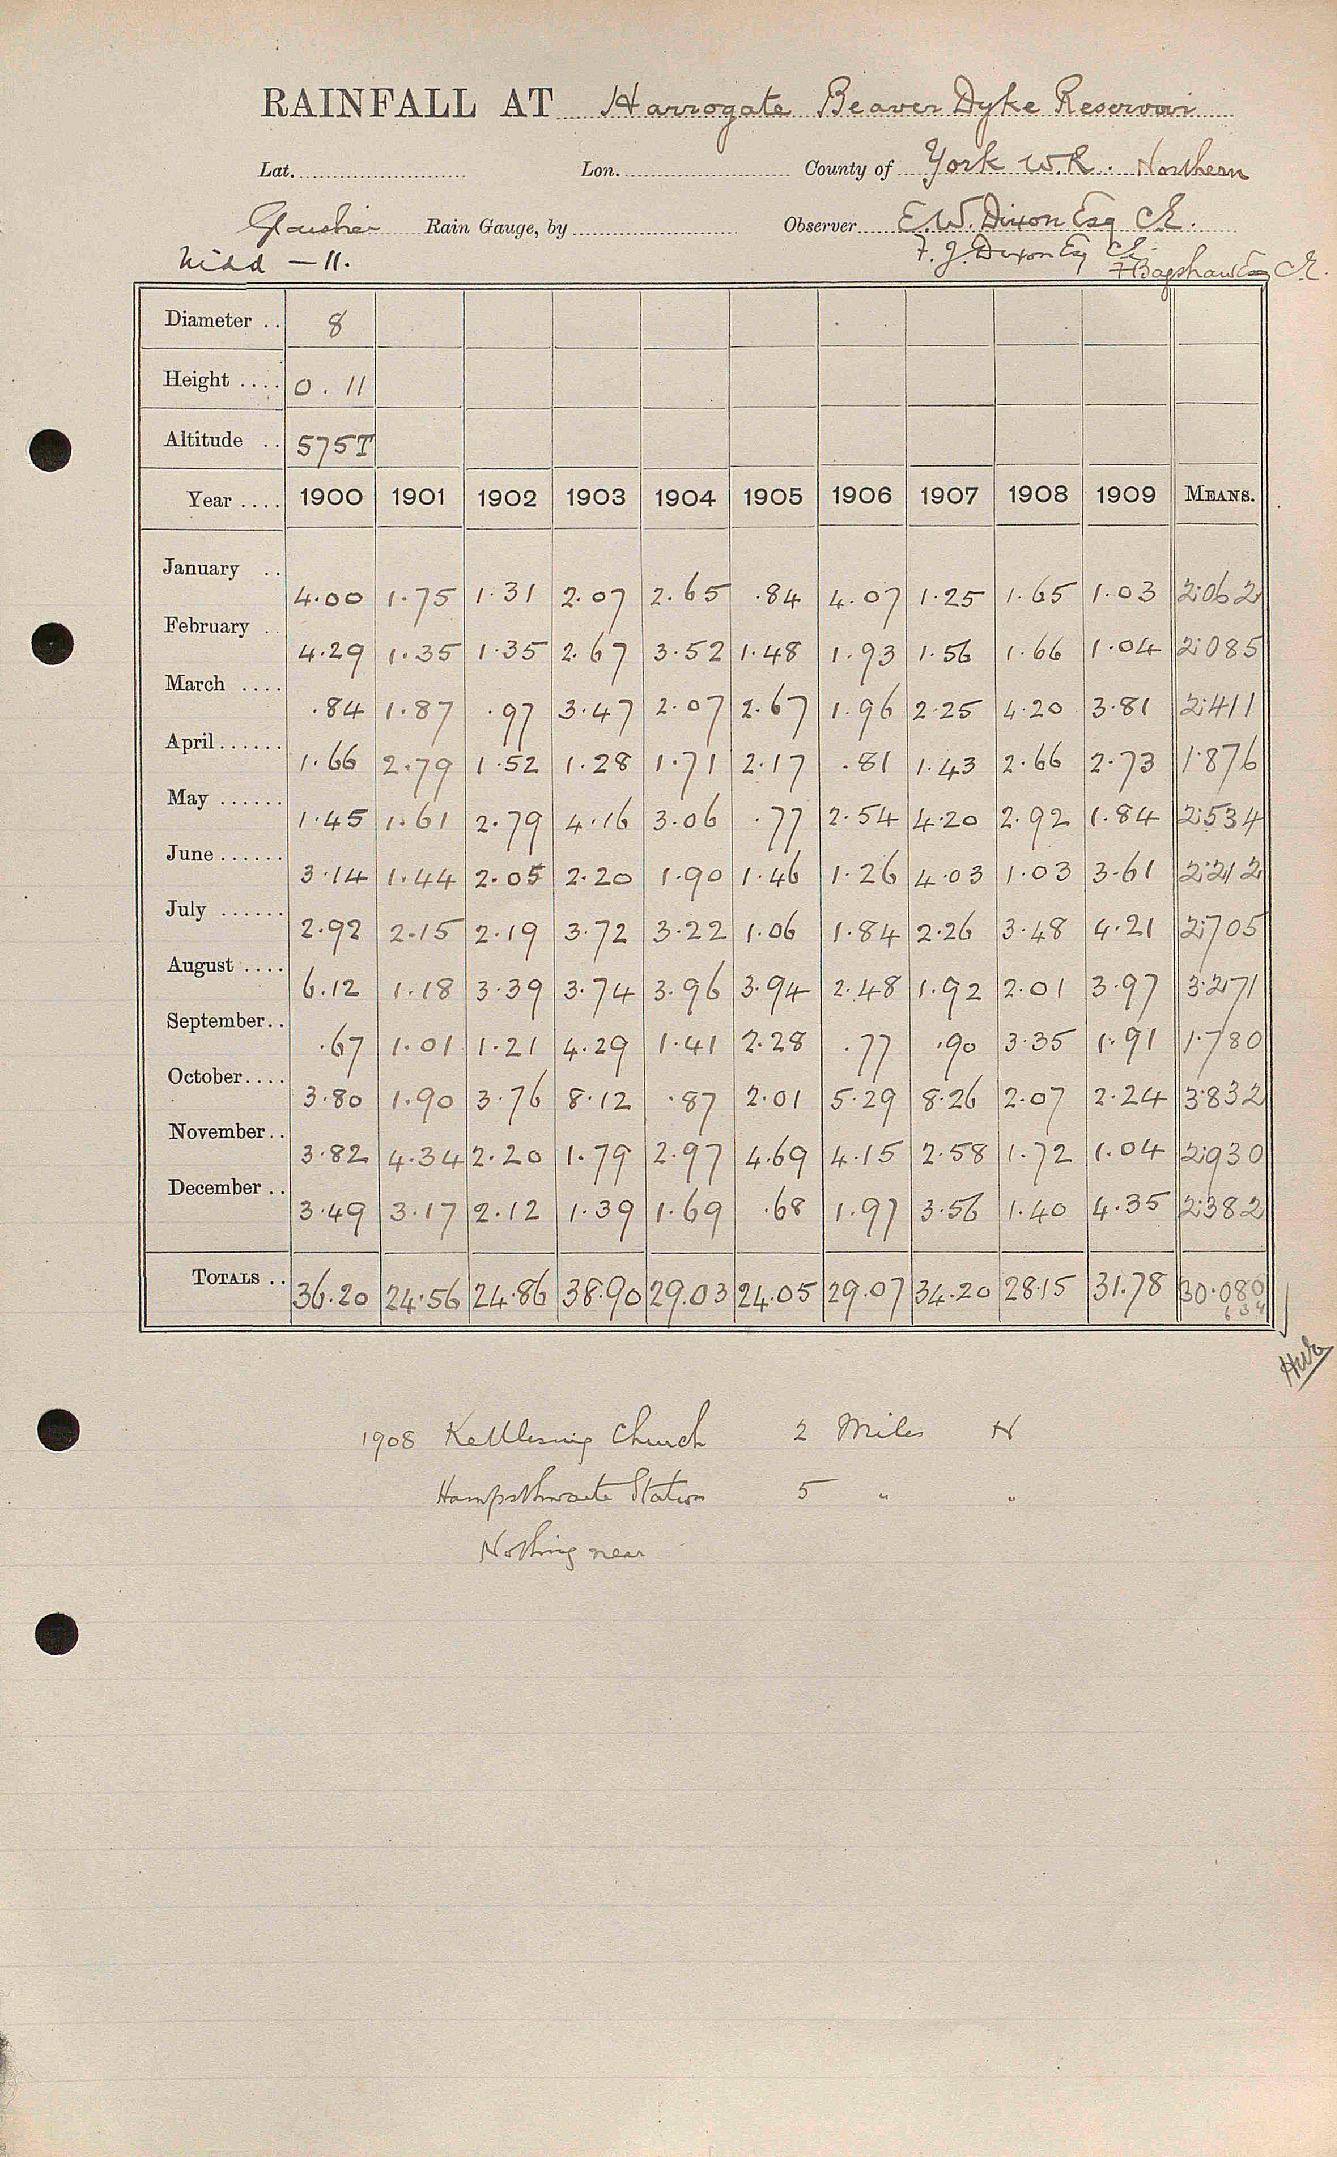 RAINFALL AT Harrogate Beaver Dyke Reservoir
Lat. Lon. County of York W.R. Northern
Glaisher Rain Gauge, by Observer E.W. Dixon Esq C.E.
Nidd — 11. F. J. Dixon Esq C.E.
F Bagshaw Esq C.E.
Diameter .. 8
Height .... 0 . 11
Altitude .. 575T
Year .... 1900 1901 1902 1903 1904 1905 1906 1907 1908 1909 MEANS.
January .. 4.00 1.75 1.31 2.07 2.65 .84 4.07 1.25 1.65 1.03 2.062
February .. 4.29 1.35 1.35 2.67 3.52 1.48 1.93 1.56 1.66 1.04 2.085
March .... .84 1.87 .97 3.47 2.07 2.67 1.96 2.25 4.20 3.81 2.411
April ...... 1.66 2.79 1.52 1.28 1.71 2.17 .81 1.43 2.66 2.73 1.876
May ...... 1.45 1.61 2.79 4.16 3.06 .77 2.54 4.20 2.92 1.84 2.534
June ...... 3.14 1.44 2.05 2.20 1.90 1.46 1.26 4.03 1.03 3.61 2.212
July ...... 2.92 2.15 2.19 3.72 3.22 1.06 1.84 2.26 3.48 4.21 2.705
August .... 6.12 1.18 3.39 3.74 3.96 3.94 2.48 1.92 2.01 3.97 3.271
September .. .67 1.01 1.21 4.29 1.41 2.28 .77 .90 3.35 1.91 1.780
October .... 3.80 1.90 3.76 8.12 .87 2.01 5.29 8.26 2.07 2.24 3.832
November .. 3.82 4.34 2.20 1.79 2.97 4.69 4.15 2.58 1.72 1.04 2.930
December .. 3.49 3.17 2.12 1.39 1.69 .68 1.97 3.56 1.40 4.35 2.382
TOTALS .. 36.20 24.56 24.86 38.90 29.03 24.05 29.07 34.20 28.15 31.78 30.080
1908 Kettlesing Church 2 Miles N
Hampsthwaite Station 5 " "
Nothing near